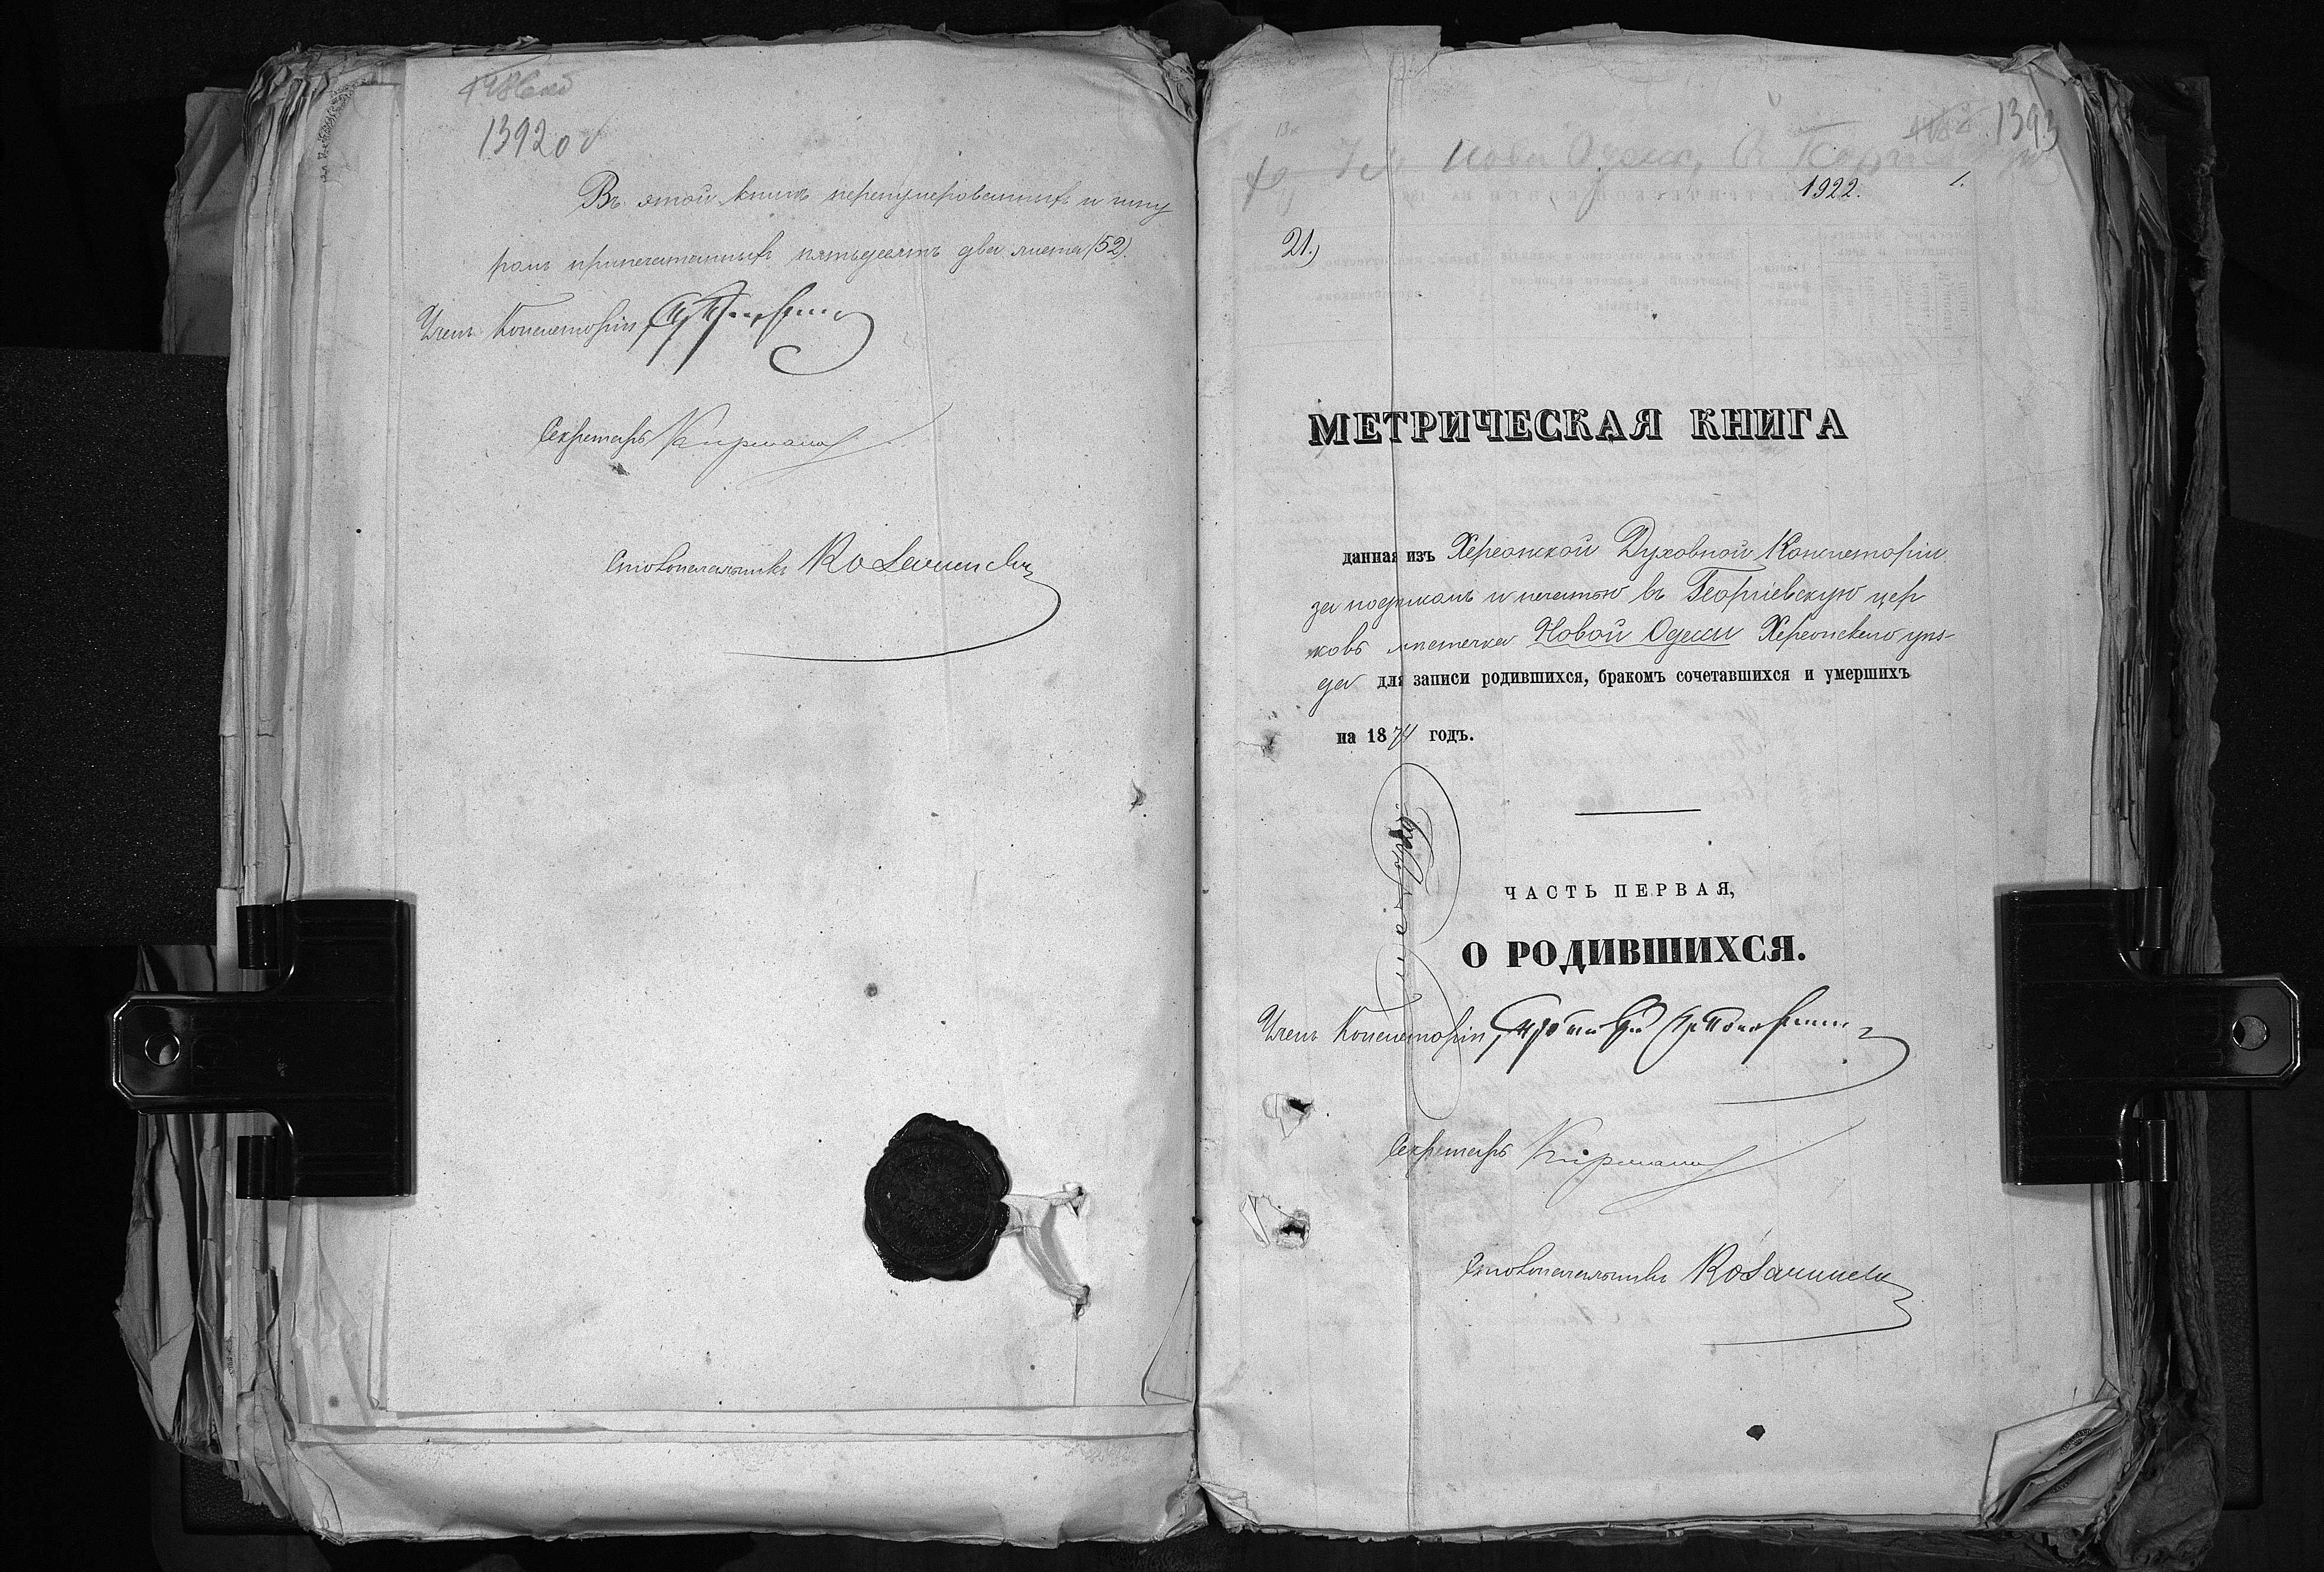 1392 об
Въ этой книгѣ перенумерованныхъ и шну
ромъ припечатанныхъ пятьдесятъ два листа (52).
Членъ Консисторіи
Секретарь
Столоначальникъ
1393
Нов. Одесса,
1922. 1.
21.)
МЕТРИЧЕСКАЯ КНИГА
данная изъ Херсонской Духовной Консисторіи
за шнуромъ и печатью въ Георгіевскую цер
ковь мѣстечка Новой Одессы Херсонскаго уѣз-
да для записи родившихся, бракомъ сочетавшихся и умершихъ
на 1874 годъ.
ЧАСТЬ ПЕРВАЯ,
О РОДИВШИХСЯ.
Членъ Консисторіи
Секретарь
Столоначальникъ